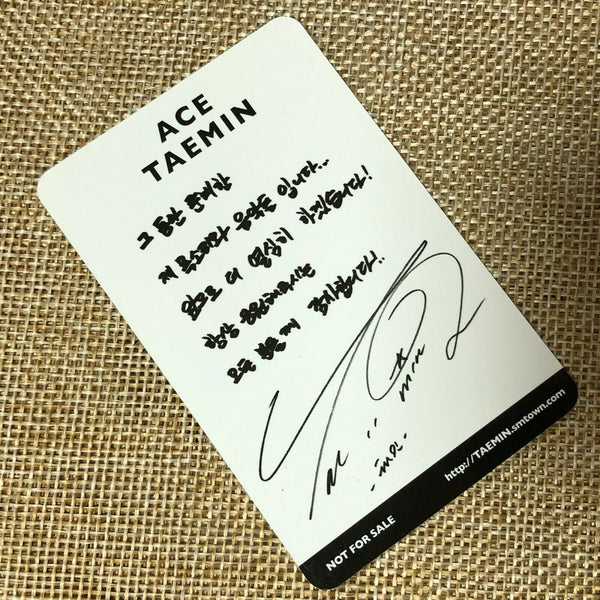 ACE
TAEMIN
그 동안 준비한
제 목소리와 음악들 입니다..
앞으로 더 열심히 하겠습니다!
항상 응원해주시는
모든 분들께 감사합니다!..
-태민-
http://TAEMIN.smtown.com
NOT FOR SALE